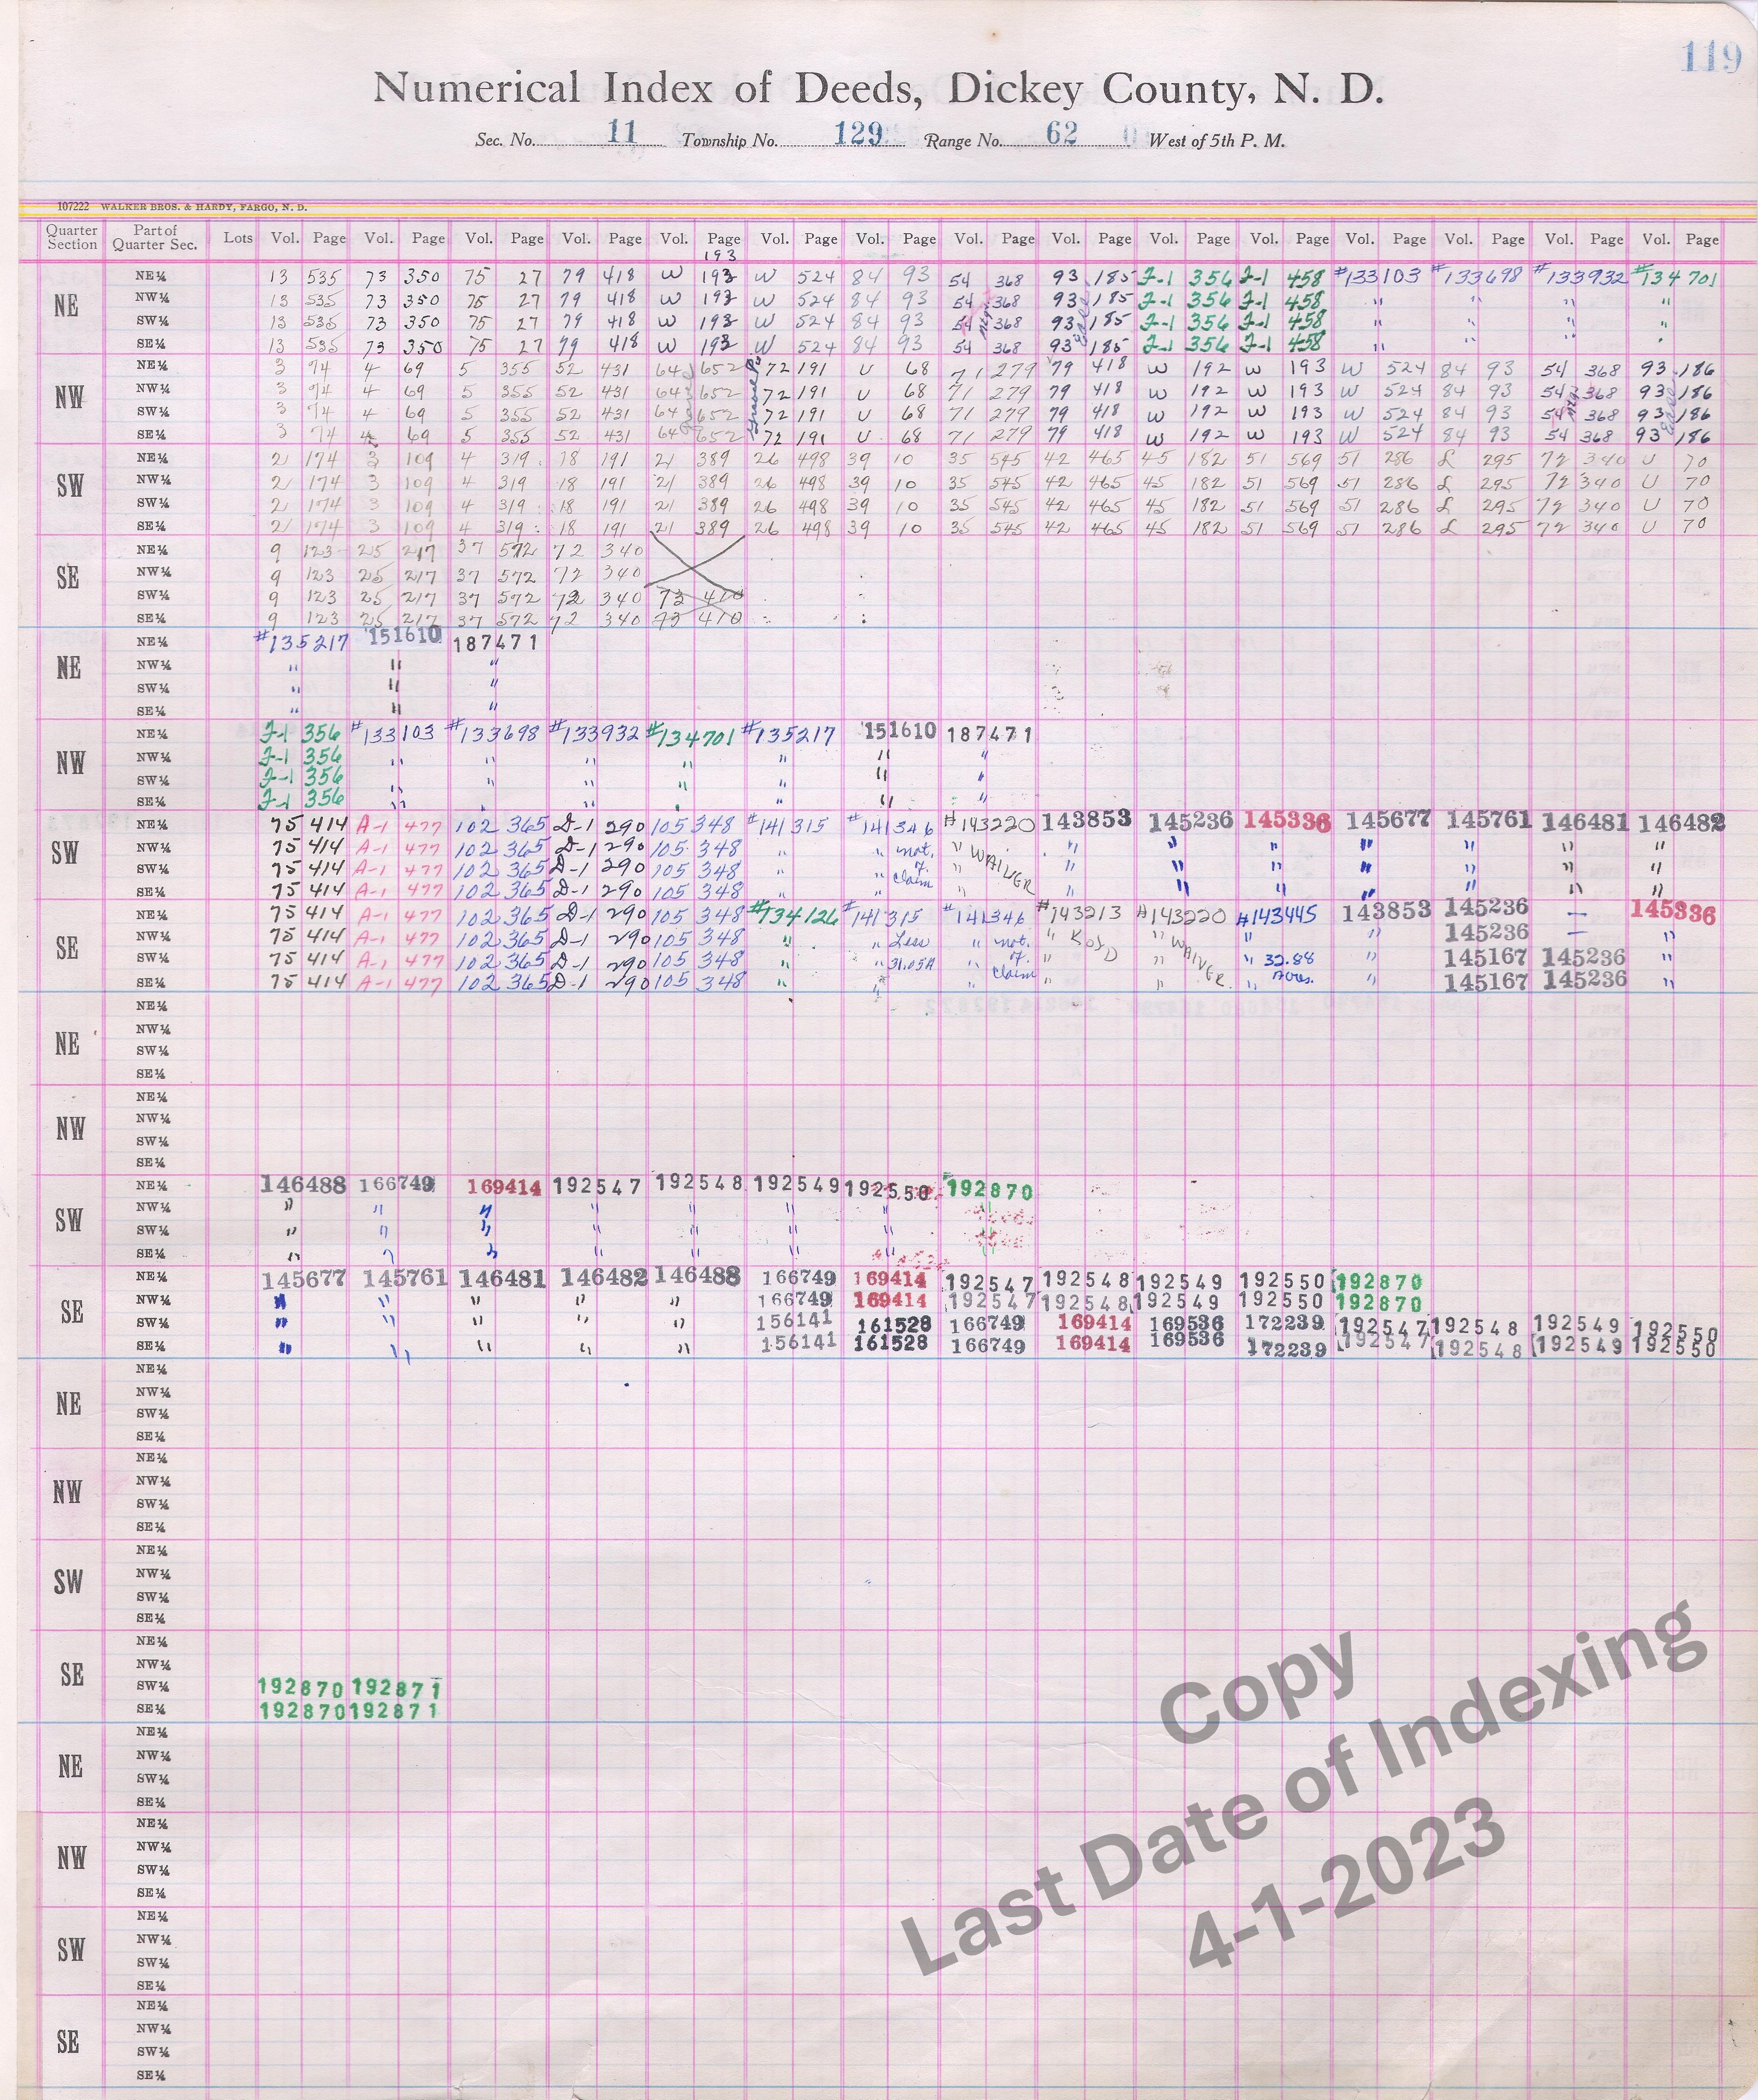 119
Numerical Index of Deeds, Dickey County, N. D.
Sec. No. 11 Township No. 129 Range No. 62 West of 5th P. M.
107222 WALKER BROS. & HARDY, FARGO, N. D.
Quarter Section Part of Quarter Sec. Lots Vol. Page Vol. Page Vol. Page Vol. Page Vol. Page Vol. Page Vol. Page Vol. Page Vol. Page Vol. Page Vol. Page Vol. Page Vol. Page Vol. Page Vol. Page
193
NE NE¼ 13 535 73 350 75 27 79 418 W 193 W 524 84 93 54 368 93 185 J-1 356 J-1 458 #133103 #133698 #133932 #134701
NW¼ 13 535 73 350 75 27 79 418 W 193 W 524 84 93 54 368 93 185 J-1 356 J-1 458 " " " "
SW¼ 13 535 73 350 75 27 79 418 W 193 W 524 84 93 54 368 93 185 J-1 356 J-1 458 " " " "
SE¼ 13 535 73 350 75 27 79 418 W 193 W 524 84 93 54 368 93 185 J-1 356 J-1 458 " " " "
NW NE¼ 3 74 4 69 5 355 52 431 64 652 72 191 U 68 71 279 79 418 W 192 W 193 W 524 84 93 54 368 93 186
NW¼ 3 74 4 69 5 355 52 431 64 652 72 191 U 68 71 279 79 418 W 192 W 193 W 524 84 93 54 368 93 186
SW¼ 3 74 4 69 5 355 52 431 64 652 72 191 U 68 71 279 79 418 W 192 W 193 W 524 84 93 54 368 93 186
SE¼ 3 74 4 69 5 355 52 431 64 652 72 191 U 68 71 279 79 418 W 192 W 193 W 524 84 93 54 368 93 186
SW NE¼ 2 174 3 109 4 319 18 191 21 389 26 498 39 10 35 545 42 465 45 182 51 569 51 286 L 295 72 340 U 70
NW¼ 2 174 3 109 4 319 18 191 21 389 26 498 39 10 35 545 42 465 45 182 51 569 51 286 L 295 72 340 U 70
SW¼ 2 174 3 109 4 319 18 191 21 389 26 498 39 10 35 545 42 465 45 182 51 569 51 286 L 295 72 340 U 70
SE¼ 2 174 3 109 4 319 18 191 21 389 26 498 39 10 35 545 42 465 45 182 51 569 51 286 L 295 72 340 U 70
SE NE¼ 9 123 25 217 37 572 72 340
NW¼ 9 123 25 217 37 572 72 340
SW¼ 9 123 25 217 37 572 72 340 73 410
SE¼ 9 123 25 217 37 572 72 340 73 410
NE NE¼ #135217 151610 187471
NW¼ " " "
SW¼ " " "
SE¼ " " "
NW NE¼ J-1 356 #133103 #133698 #133932 #134701 #135217 151610 187471
NW¼ J-1 356 " " " " " " "
SW¼ J-1 356 " " " " " " "
SE¼ J-1 356 " " " " " " "
SW NE¼ 75 414 A-1 477 102 365 D-1 290 105 348 #141315 #141346 #143220 143853 145236 145336 145677 145761 146481 146482
NW¼ 75 414 A-1 477 102 365 D-1 290 105 348 " " not. " WAIVER " " " " " " "
SW¼ 75 414 A-1 477 102 365 D-1 290 105 348 " " of " " " " " " " "
SE¼ 75 414 A-1 477 102 365 D-1 290 105 348 " " Claim " " " " " " " "
SE NE¼ 75 414 A-1 477 102 365 D-1 290 105 348 #134126 #141315 #141346 #143213 #143220 #143445 143853 145236 — 145336
NW¼ 75 414 A-1 477 102 365 D-1 290 105 348 " " Less " not. " " WAIVER " " 145236 — "
SW¼ 75 414 A-1 477 102 365 D-1 290 105 348 " " 31.05A " of " " " 32.88 " 145167 145236 "
SE¼ 75 414 A-1 477 102 365 D-1 290 105 348 " " " Claim " " " Acres. " 145167 145236 "
NE NE¼
NW¼
SW¼
SE¼
NW NE¼
NW¼
SW¼
SE¼
SW NE¼ 146488 166749 169414 192547 192548 192549 192550 192870
NW¼ " " " " " " " "
SW¼ " " " " " " " "
SE¼ " " " " " " " "
SE NE¼ 145677 145761 146481 146482 146488 166749 169414 192547 192548 192549 192550 192870
NW¼ " " " " " 166749 169414 192547 192548 192549 192550 192870
SW¼ " " " " " 156141 161528 166749 169414 169536 172239 192547 192548 192549 192550
SE¼ " " " " " 156141 161528 166749 169414 169536 172239 192547 192548 192549 192550
NE NE¼
NW¼
SW¼
SE¼
NW NE¼
NW¼
SW¼
SE¼
SW NE¼
NW¼
SW¼
SE¼
SE NE¼
NW¼
SW¼ 192870 192871
SE¼ 192870 192871
NE NE¼
NW¼
SW¼
SE¼
NW NE¼
NW¼
SW¼
SE¼
SW NE¼
NW¼
SW¼
SE¼
SE NE¼
NW¼
SW¼
SE¼
Copy
Last Date of Indexing
4-1-2023